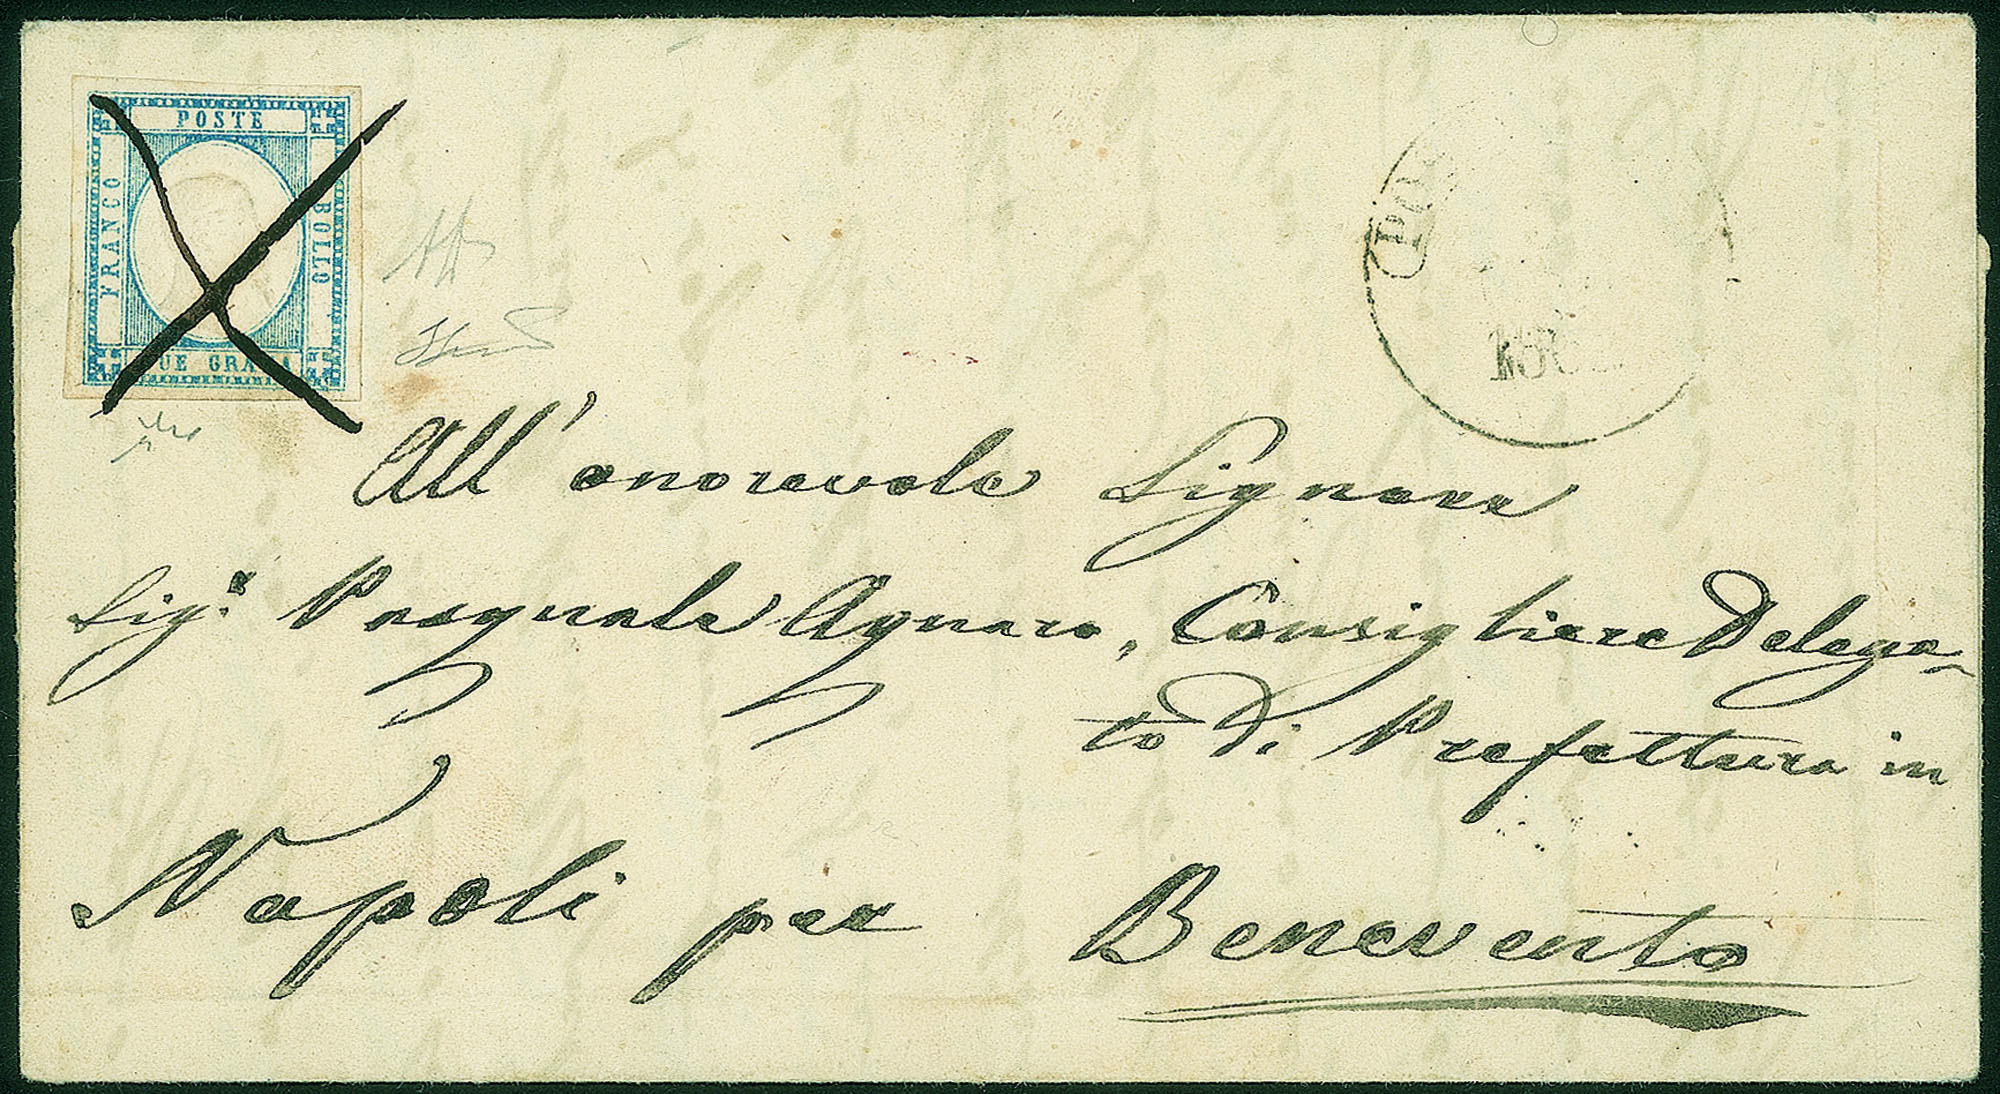 POSTE
FRANCO
BOLLO
DUE GRANA
POS
All'onorevole Signore
Sig.r Pasquale Agnaro, Consigliere Delega-
to di Prefettura in
Napoli per Benevento